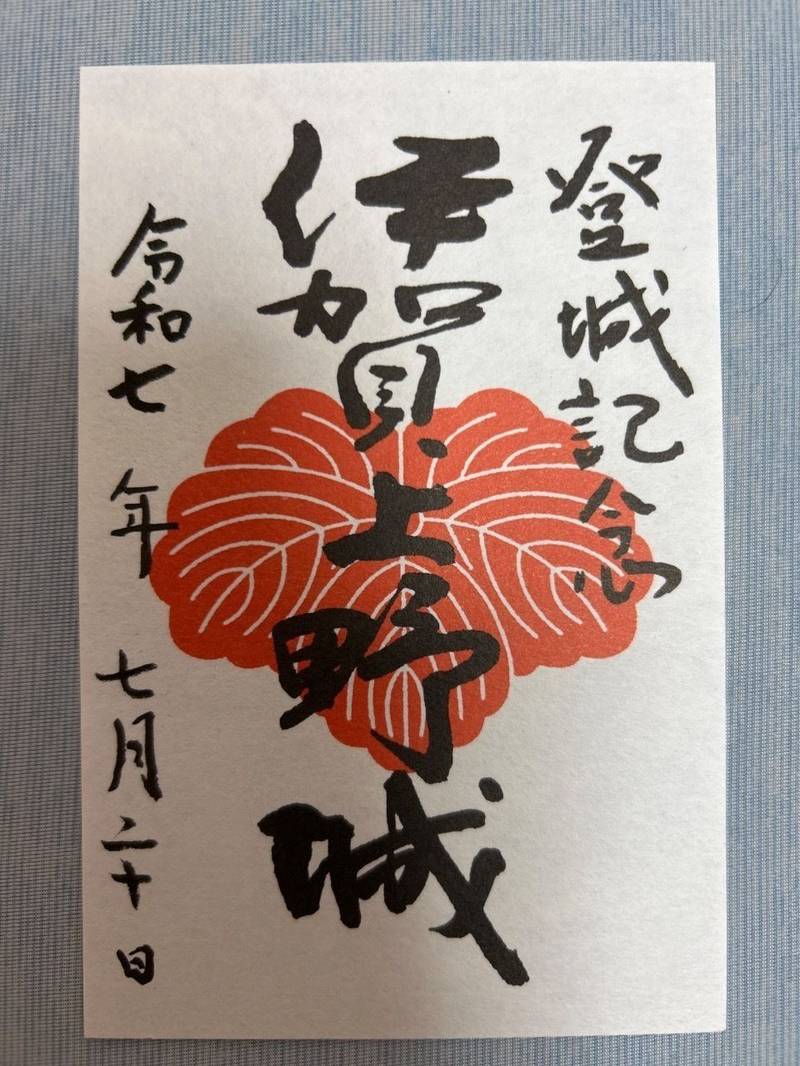 登城記念
伊賀上野城
令和七年 七月二十日